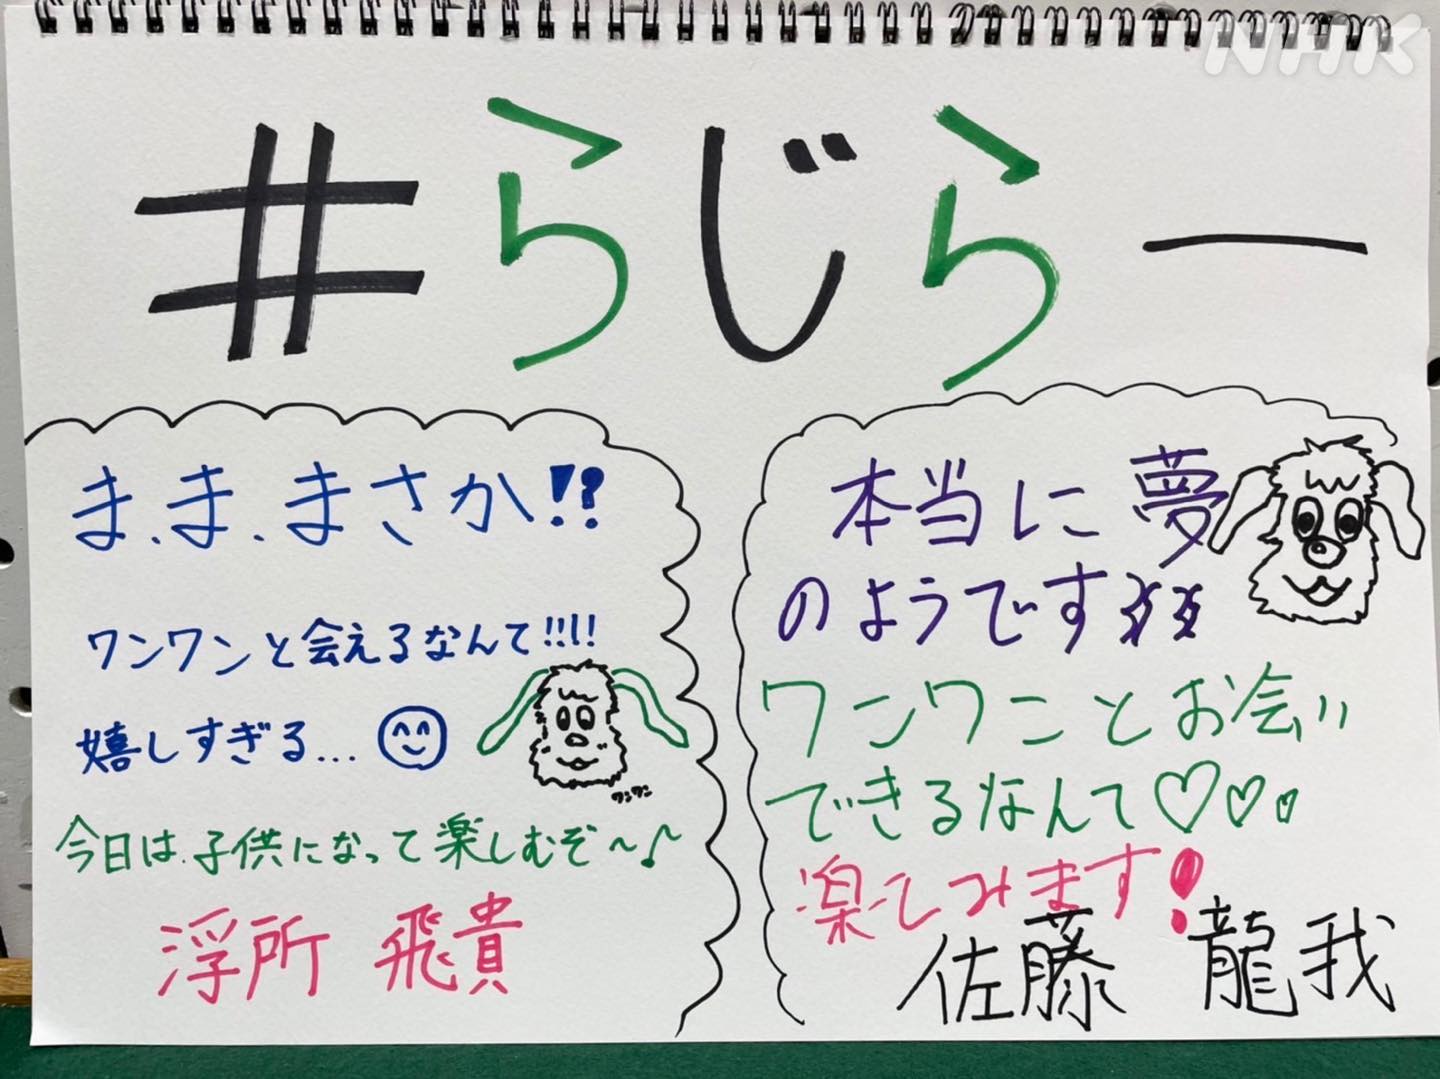 NHK
#らじらー
ま、ま、まさか!?
ワンワンと会えるなんて!!!!
嬉しすぎる...
ワンワン
今日は、子供になって楽しむぞ〜♪
浮所 飛貴
本当に夢
のようです
ワンワンとお会い
できるなんて♡♡♡
楽しみます!
佐藤 龍我